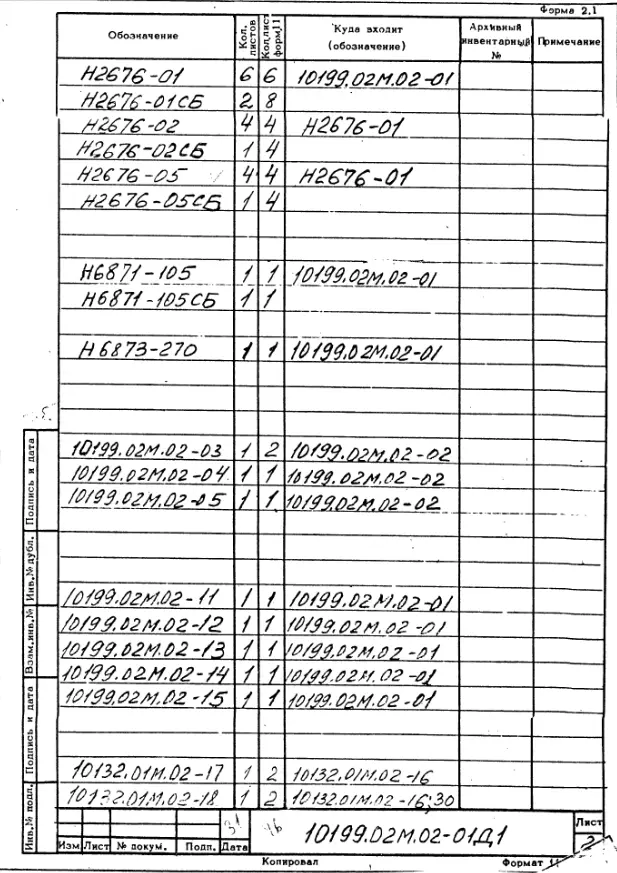 Форма 2.1
Обозначение Кол. листов Кол. лист форм 11 Куда входит (обозначение) Архивный инвентарный № Примечание
Н2676-01 6 6 10199.02М.02-01
Н2676-01СБ 2 8
Н2676-02 4 4 Н2676-01
Н2676-02СБ 1 4
Н2676-05 4 4 Н2676-01
Н2676-05СБ 1 4
Н6871-105 1 1 10199.02М.02-01
Н6871-105СБ 1 1
Н6873-270 1 1 10199.02М.02-01
10199.02М.02-03 1 2 10199.02М.02-02
10199.02М.02-04 1 1 10199.02М.02-02
10199.02М.02-05 1 1 10199.02М.02-02
10199.02М.02-11 1 1 10199.02М.02-01
10199.02М.02-12 1 1 10199.02М.02-01
10199.02М.02-13 1 1 10199.02М.02-01
10199.02М.02-14 1 1 10199.02М.02-01
10199.02М.02-15 1 1 10199.02М.02-01
10132.01М.02-17 1 2 10132.01М.02-16
10132.01М.02-18 1 2 10132.01М.02-16;30
Подпись и дата
Инв.№ дубл.
Взам.инв.№
Подпись и дата
Инв.№ подл.
Изм Лист № докум. Подп. Дата
10199.02М.02-01Д1
Лист
2
Копировал Формат 11